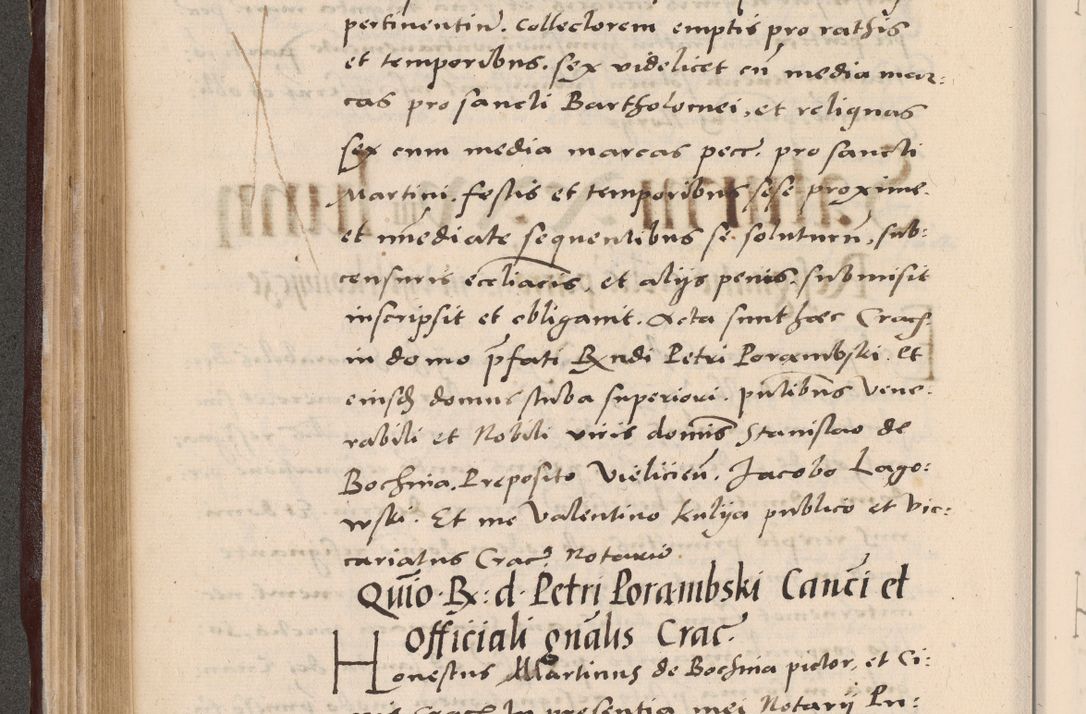 pertinentiū. collectorem emptis pro rathis
et temporibus. sex videlicet cū media mar:
cas pro sancti Bartholomei, et reliquas
sex cum media marcas pecc. pro sancti
Martini. festis et temporibus sese proxime
et īmediate sequentibus se soluturū, sub:
censuris eccliacis, et alijs penis. submisit
inscripsit et obligauit. Acta sunt hæc Crac.
in domo p̄fati Rndi Petri Porambski. et
eiusd domus stuba superiori. pntibus vene:
rabili et Nobili viris domīs Stanislao de
Bochnia. Preposito Vieliciēn. Jacobo Lago:
wski. Et me Valentino Kulya publico et vic:
cariatus Crac. Notario
Quīo. R: d. Petri Porambski Canc̄i et
Officiali gnālis Crac.
Honestus Martinus de Bochnia pictor, et Ci:
uis Crac. In presentia mei Notarij Pu: